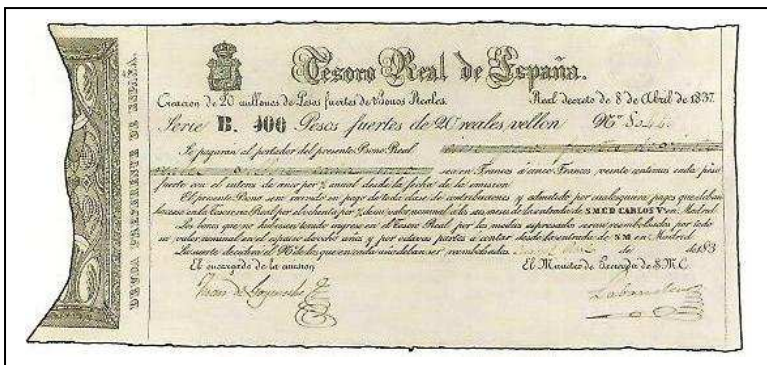 Tesoro Real de España.
Creacion de 20 millones de Pesos fuertes de Bonos Reales. Real decreto de 8 de Abril de 1837
Serie B. 400 Pesos fuertes de 20 reales vellon Nº
Se pagaran al portador del presente Bono Real
sea en Francos ó cinco Francos veinte centimos cada peso
fuerte con el interes de cinco por % annual desde la fecha de la emision
El presente Bono sera recivido en pago de toda clase de contribuciones y admitido por cualesquiera pagos que deban
hacerse en la Tesoreria Real por el ochenta por % de su valor nominal a los seis meses de la entrada de S M C D CARLOS Vº en Madrid
Los bonos que no hubiesen tenido ingreso en el Tesoro Real por los modos expresados seran reembolsados por todo
su valor nominal en el espacio de ocho años y por octavas partes a contar desde la entrada de S M en Madrid
La suerte decidira el Nº de los que en cada año deban ser reembolsados. de de 183
El encargado de la emision El Ministro de de S.M.C.
DEUDA PREFERENTE DE ESPAÑA.